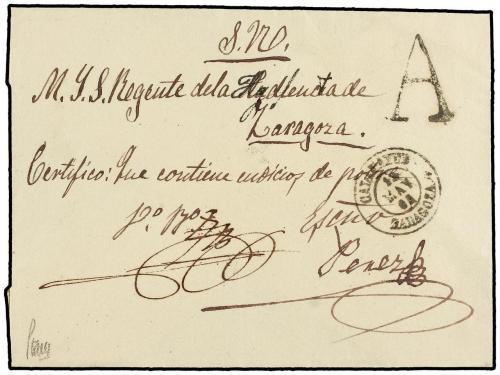 S. N.
A
M. Y. S. Regente de la Audiencia de
Zaragoza.
Certifico: Que contiene indicios de
CALATAYUD
MAY
ZARAGOZA
Perez